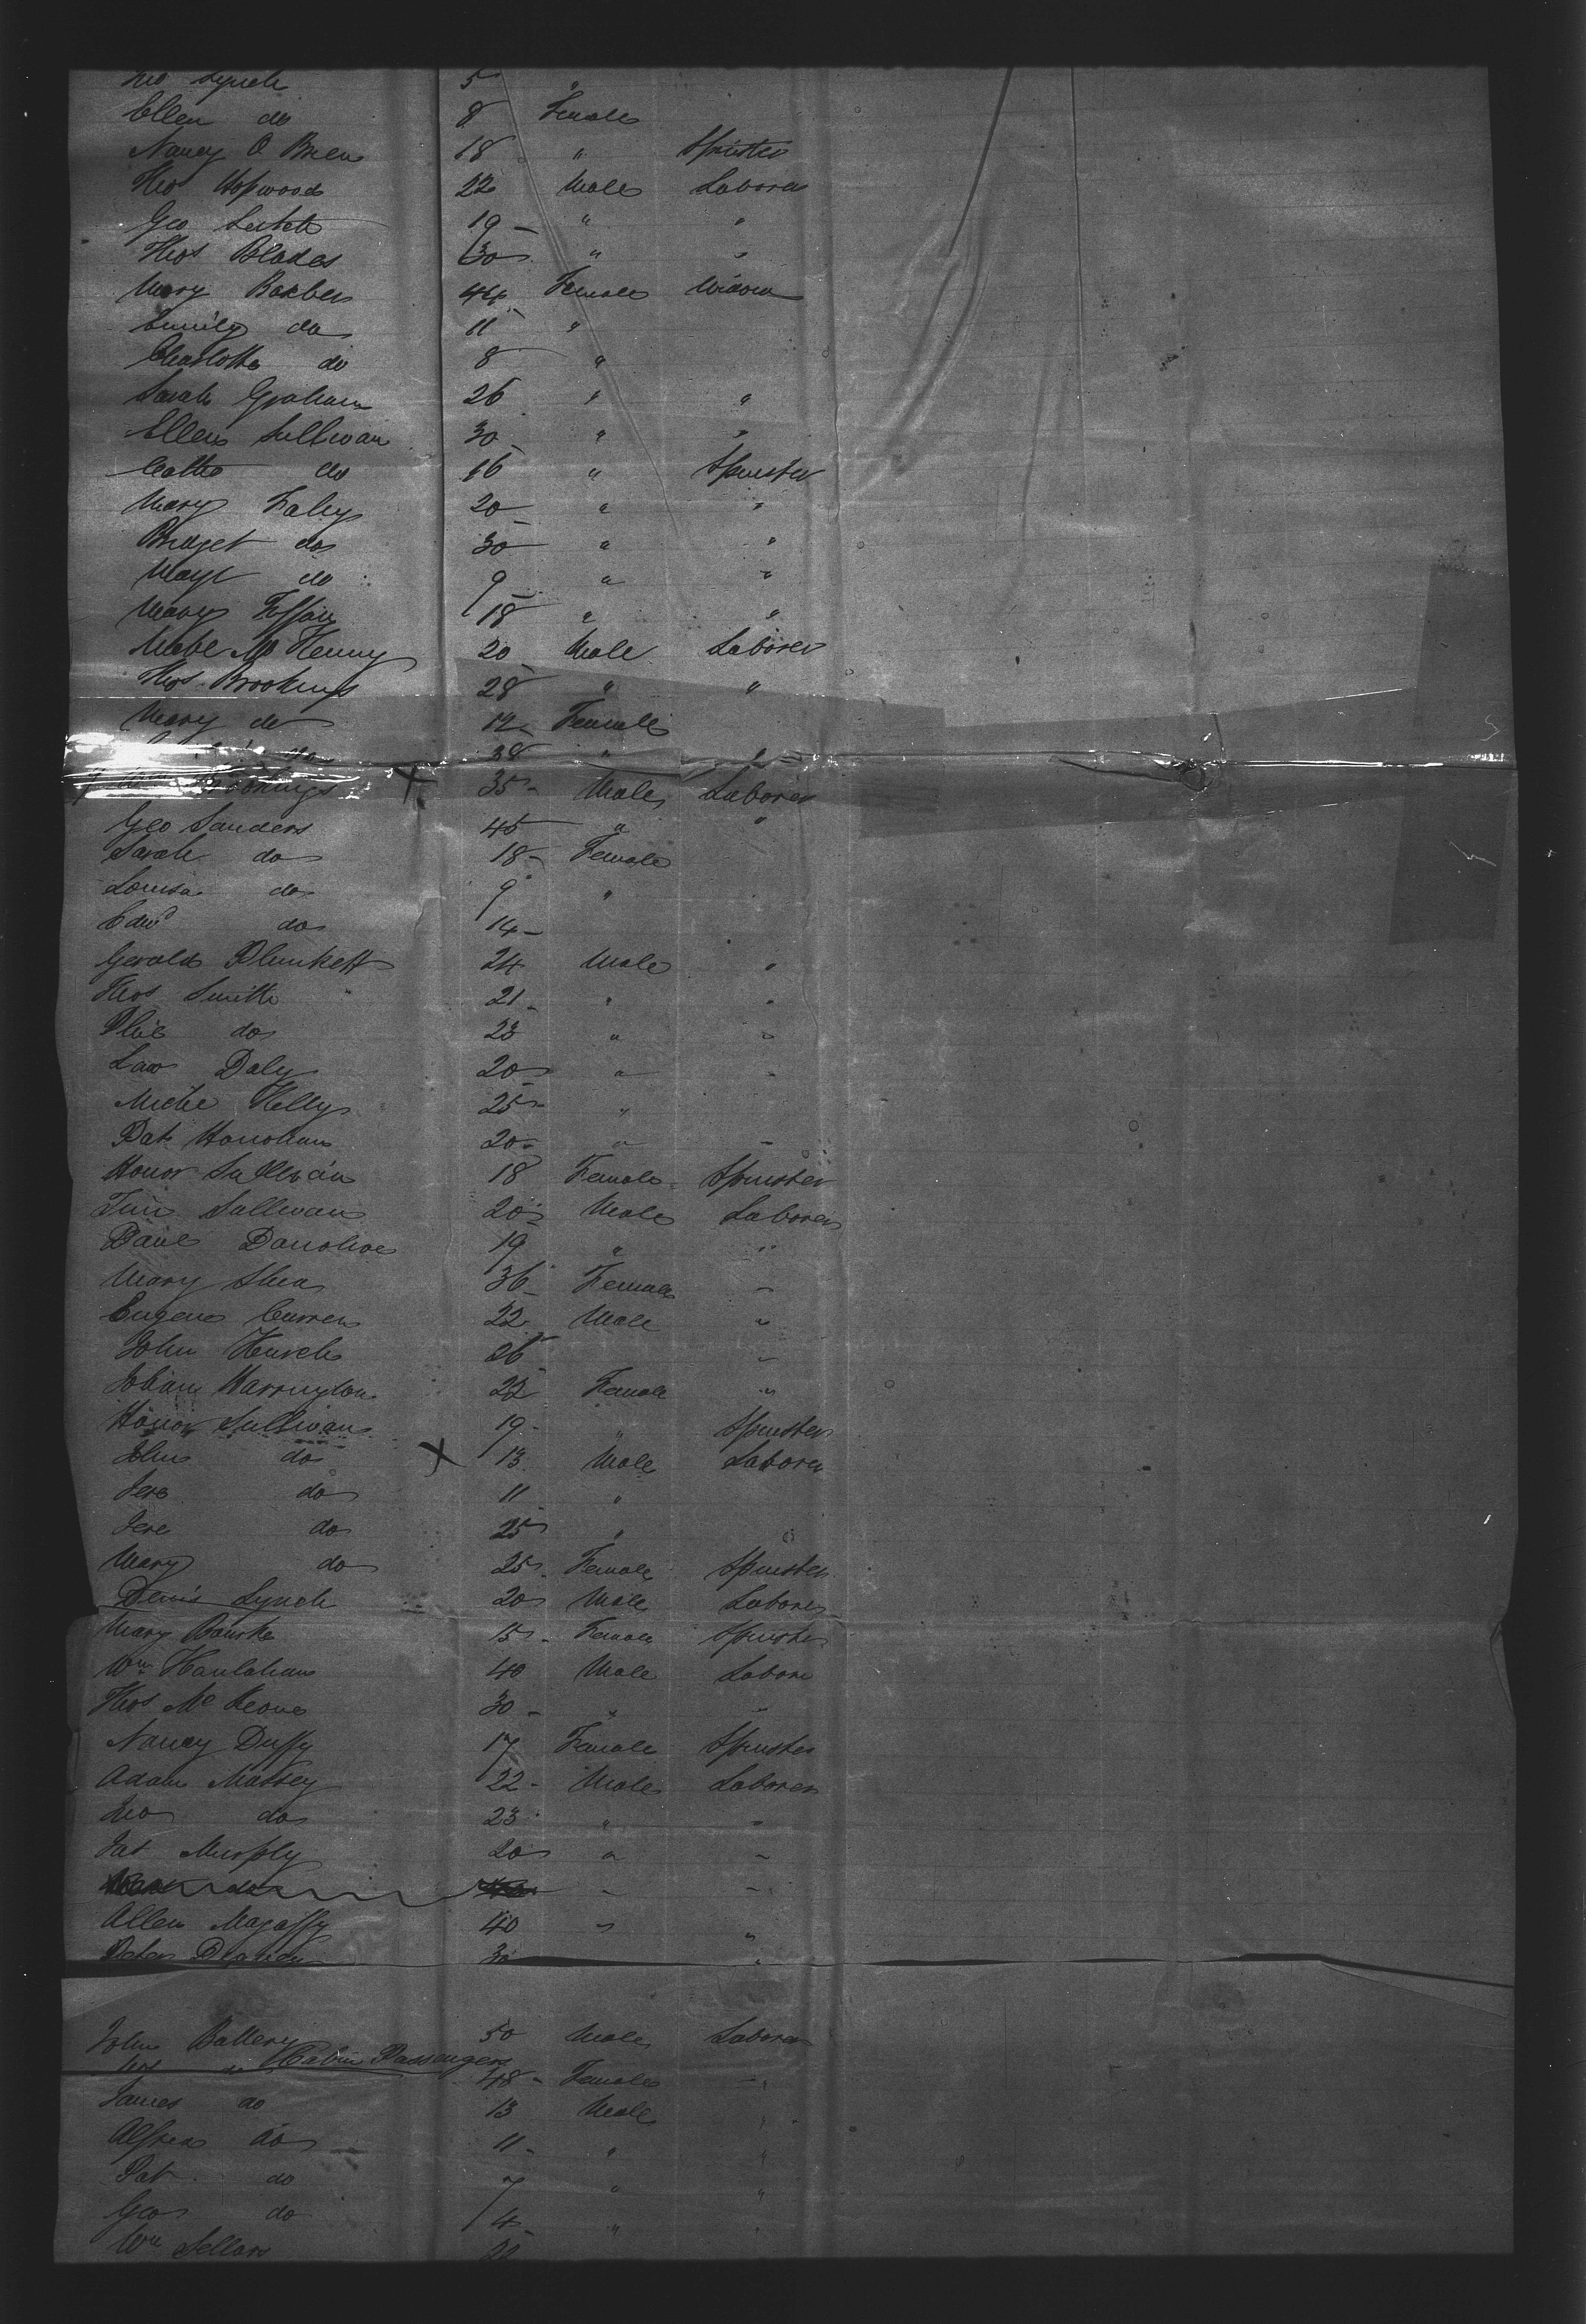 Lynch 5 "
Ellen do 8 Female
Nancy O Brien 18 " Spinster
Thos Hopwood 22 Male Laborer
Geo 19 " "
Thos Blades 30 " "
Mary Barber 44 Female Widow
Emily do 11 "
Charlotte do 8 "
Sarah Graham 26 " "
Ellen Sullivan 30 " "
Cathe do 16 " Spinster
Mary Faley 20 " "
Bridget do 30 " "
Magt do 9 " "
Mary 18 " "
McHenny 20 Male Laborer
Thos Brookings 28 " "
Mary do 12 Female
do 38 "
Brookings X 35 Male Laborer
Geo Sanders 45 " "
Sarah do 18 Female
Louisa do 9 "
Edwd do 14
Gerald Plunkett 24 Male "
Thos Smith 21 " "
do 23 " "
Law Daly 20 " "
Miche Kelly 25 "
Pat Honohan 20 " "
Honor Sullivan 18 Female Spinster
Tim Sullivan 20 Male Laborer
19 " "
Mary Shea 36 Female "
Eugene Curren 22 Male "
John 26 "
Harrington 22 Female "
Honor Sullivan 19 " Spinster
John do X 13 Male Laborer
Jere do 11 "
Jere do 25 " "
Mary do 25 Female Spinster
Denis Lynch 20 Male Laborer
Mary Bourke 15 Female Spinster
Wm Hanlahan 40 Male Labore
Thos McKeone 30 " "
Nancy Duffy 17 Female Spinster
Adam Massey 22 Male Laborer
Jno do 23 " "
Pat Murphy 20 " "
do " "
Allen Magaffy 40 " "
Peter 30 "
John Battery 50 Male Laborer
Cabin Passengers
do 48 Female "
James do 13 Male "
Alfred do 11 " "
Pat do 7 " "
Geo do 4 " "
Wm Sellars